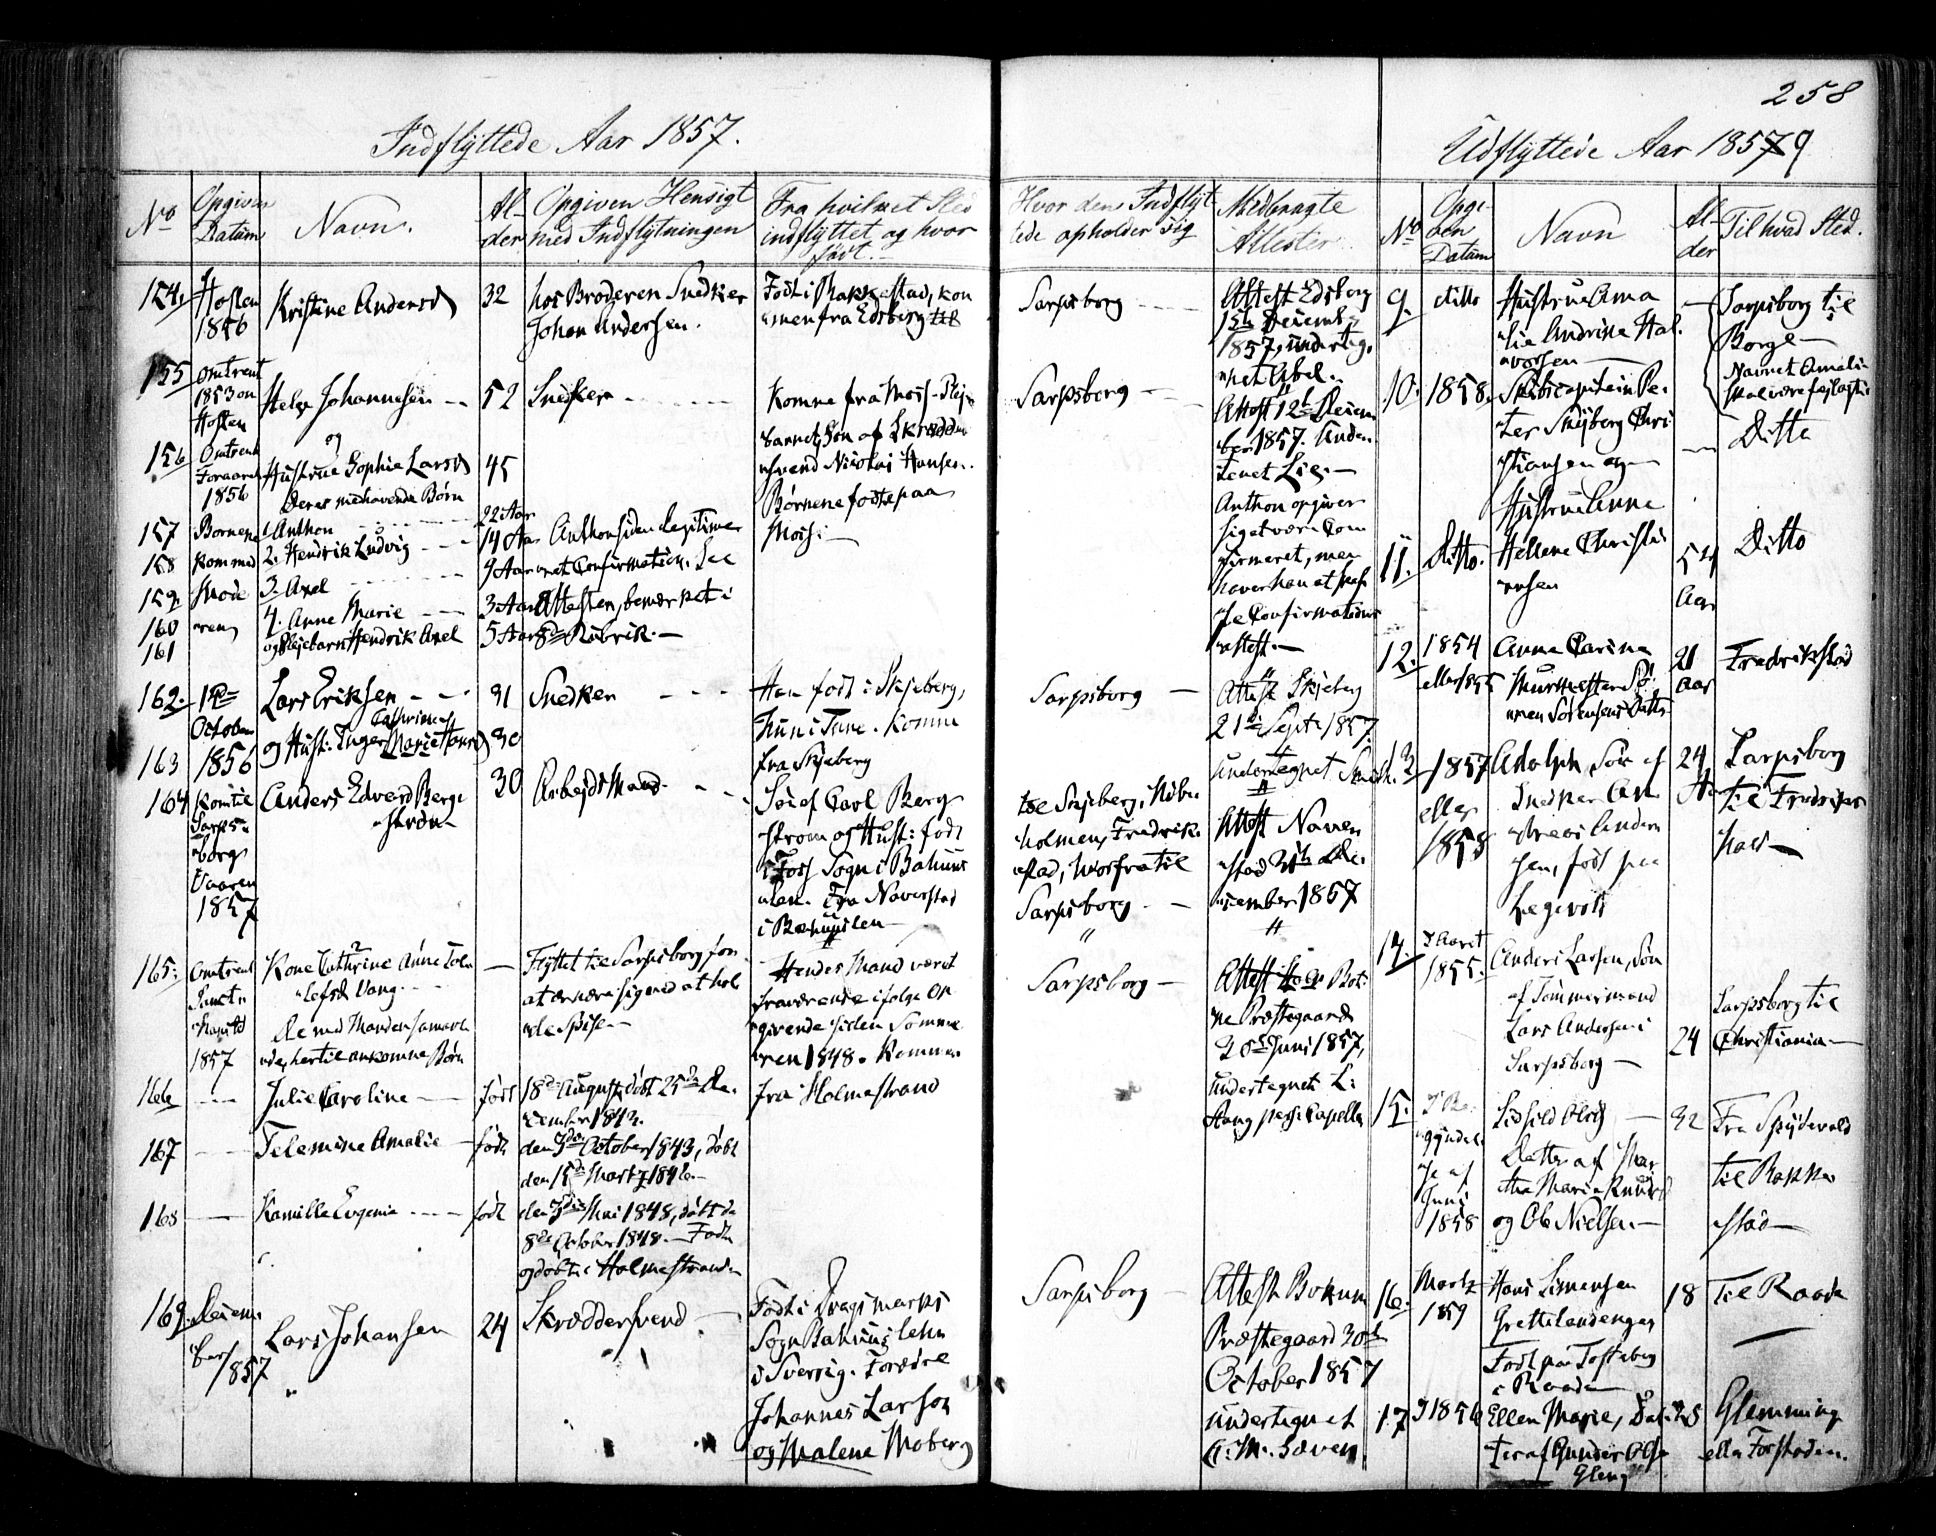 258
Indflyttede Aar 1857.
No
Opgiven Datum
Navn.
Alder
Opgiven Hensigt med Indflytningen
Fra hvilket Sted indflyttet og hvor født.
Hvor den Indflyttede opholder sig
Medbragte Attester
154,
Høsten
1856
Kristine Andersd
32
hos Broderen Snedker
Johan Andersen.
Født i Rakkestad, kommen fra Edsberg
Sarpsborg
Attest Edsberg
15de Decemb.
1857, undertegnet Abel.
155
omtrent
1853 om
Høsten
Helge Johannesen
52
Snedker
Komne fra Moss
Sarpsborg
Attest 12te December 1857.
156
Omtrent
Foraaret
1856
og
Hustrue Sophie Larsd
45
Deres medhavende Børn
barnet, Søn af Skræddersvend Nicolai Hansen.
Børnene fødte paa
Moss.
157
Børnene
1 Anthon
22 Aar
158
kom med
2. Hendrik Ludvig
14 Aar
Anthon siden legitimeret Confirmation. See
Attesten, bemærket i
8de Rubrik.
159
Mode
3. Axel
9 Aar
160
ren
4. Anne Marie
3 Aar
161
og Pleiebarn Hendrik Axel
5 Aar
Anthon opgiver
sig at være Confirmeret, men
haver han at skaffe Confirmations
attest.
162.
14de
October
1856
Lars Eriksen
31
Snedker
Han født i Skjeberg,
hun i Tune. Komne
fra Skjeberg
Sarpsborg
Attest Skjeberg
21de Septr 1857.
undertegnet
163
og Hust: Inger Cathrine Marie
30
164
Kom til
Sarpsborg
Vaaren
1857
Anders Edvard Bergstrøm
30
Arbejdsmand.
Søn af Carl Bergstrøm og Hust: født
i Foss Sogn i Bahuuslen. Fra Naverstad
i Bahuuslen
til Skjeberg,
holmen, Fredrikstad, hvorfra til
Sarpsborg.
Attest Naverstad
December 1857
165.
Omtrent
Sanct
1857
Kone Cathrine Anne
Vang.
De med Manden sammen
her til ankomne Børn
Flyttet til Sarpsborg for
at ernære sig med at holde Spise.
Hendes Mand været
fraværende ifølge Opgivende siden Sommeren 1848. Kommen
fra Holmestrand
Sarpsborg
Attest
Præstegaard
30te Juni 1857,
undertegnet L:
Stang pers: Capellan
166
Julie Caroline
født
18de August, døbt 25de December 1843.
167
Telemine Amalie
født
den 3die October 1843, døbt
den 15de Marts 1846.
168
Kamilla Eugenia
født
den 3die Mai 1848, døbt d.
8de October 1848. Født
og døbt i Holmestrand
169.
December
1857
Lars Johansen
24
Skræddersvend
Født i Dragsmarks
Sogn Bahuuslehn
i Sverrig. Forældre
Johannes Larson
og Malene Moberg
Sarpsborg
Attest Bokenæs
Præstegaard 30te
October 1857
undertegnet
Udflyttede Aar 1859
No
Opgiven Datum
Navn
Alder
Til hvad Sted.
9.
ditto
Hustrue Amalie Andrine Halvorsen
Sarpsborg til
Borge
Navnet Amalie
skal være
10.
1858.
Skibscapitein Peter Skyberg Christiansen og
Ditto
11.
Ditto.
Hustrue Anne
Hellene Christiansen
54
Aar
Ditto
12.
1854
eller 1855
Anna Carina
Murmester
Sørensens Datter
21
Aar
Fredrikstad
13
1857
eller
1858
Adolph, Søn af
Snedker Andreas Andersen, født paa
Hegevold
24
Aar
Sarpsborg
til Fredrikshald
14.
I Aaret
1855.
Anders Larsen, Søn
af Tømmermand
Lars Andersen i
Sarpsborg
24
Sarpsborg til
Christiania
15.
I Begyndelse af
Juni
1858
Lisbeth Olsd
Datter af Martha Maria Knudsd
og Ole Nielsen
32
Fra Spydeberg
til Rakkestad
16.
Marts
1859
Hans Simensen
Grettelandenger
Født paa Tofteberg
i Raade
18
Til Raade
17
I 1856
Ellen Marie, Datter af Gunder Olsen
Gleng
Glemminge
eller Forstaden.